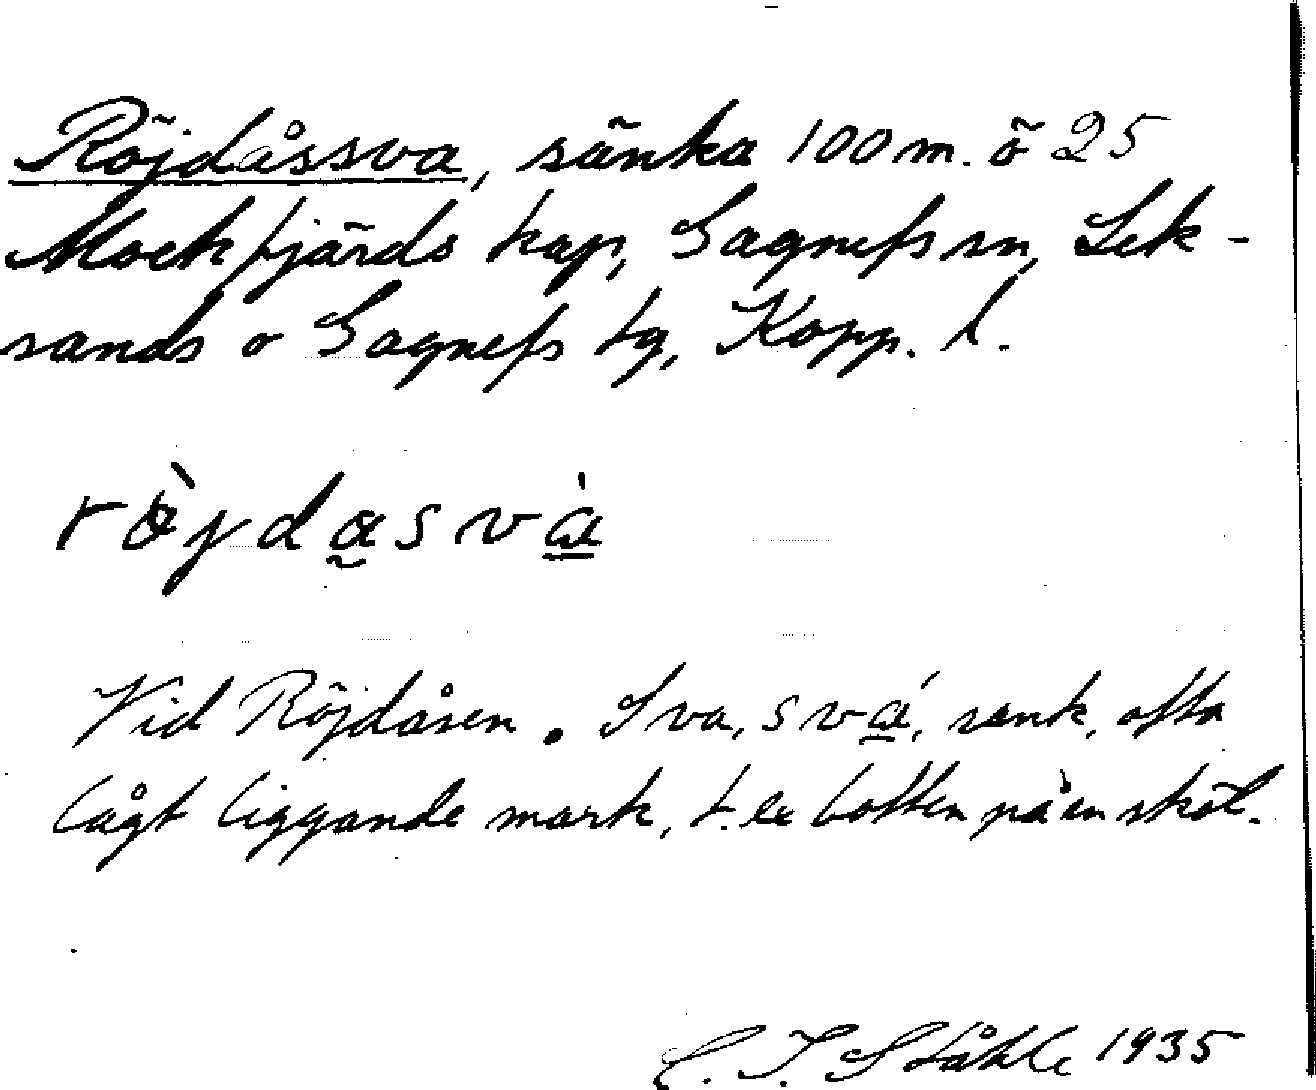 Röjdåssva, sänka 100 m. ö 25
Mockfjärds kap, Gagnefs sn, Lek-
sands o Gagnefs tg, Kopp. l.
röjdasvà
Vid Röjdåsen. Sva, svá, sank, ofta
lågt liggande mark, t. ex botten på en skål.
C. I. Ståhle 1935